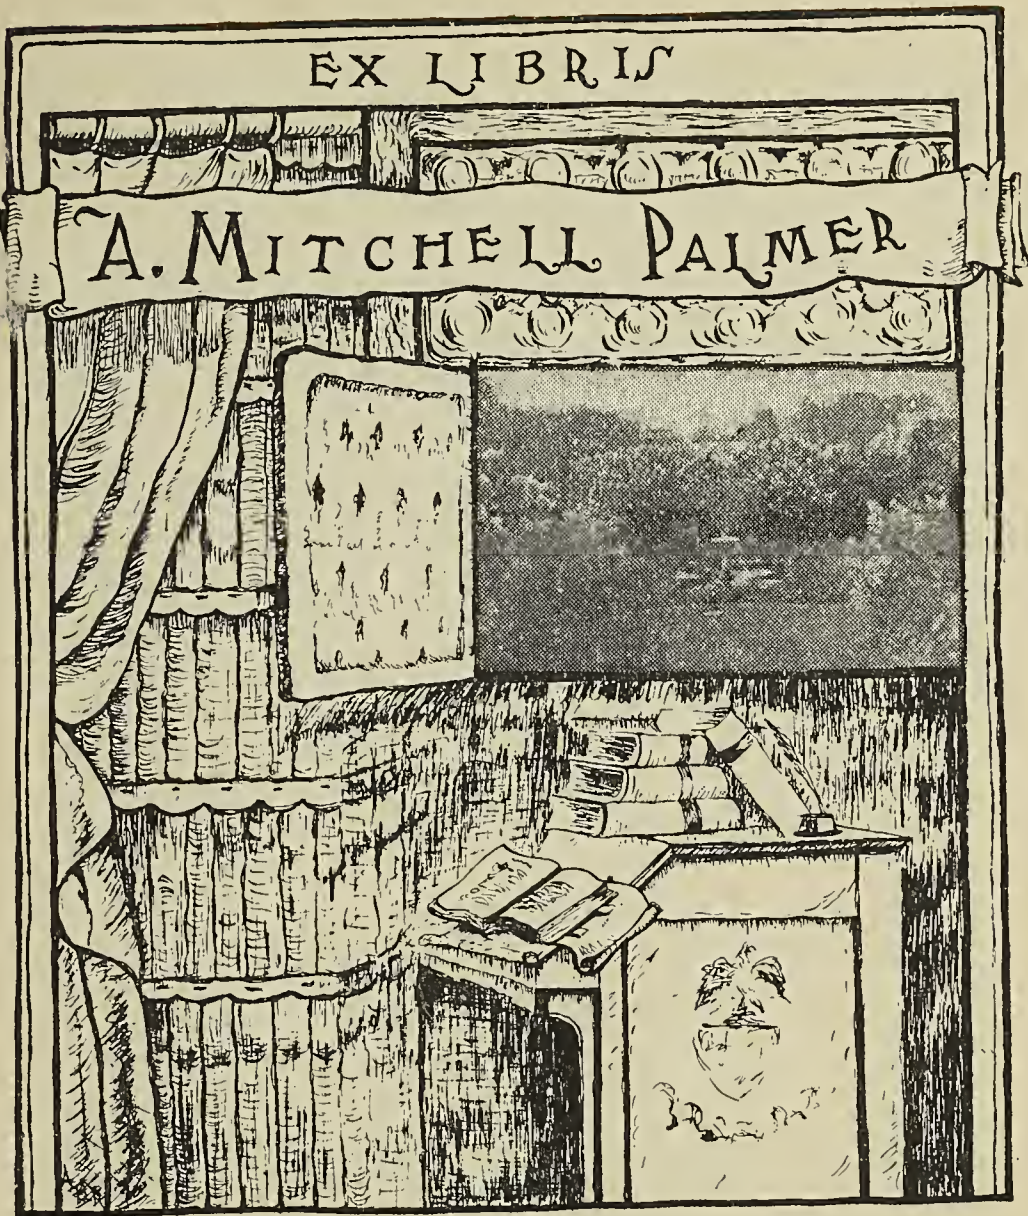 EX LIBRIS
A. MITCHELL PALMER